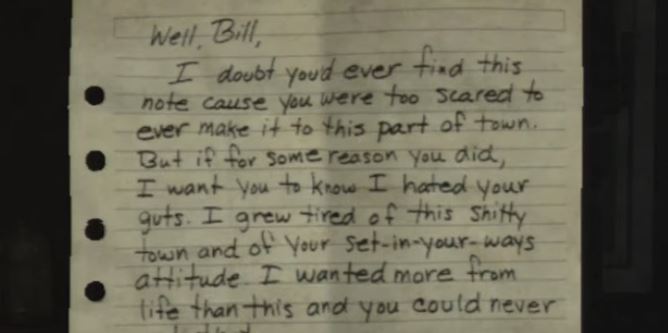 Well, Bill,
I doubt you'd ever find this
note cause you were too scared to
ever make it to this part of town.
But if for some reason you did,
I want you to know I hated your
guts. I grew tired of this shitty
town and of your set-in-your-ways
attitude. I wanted more from
life than this and you could never